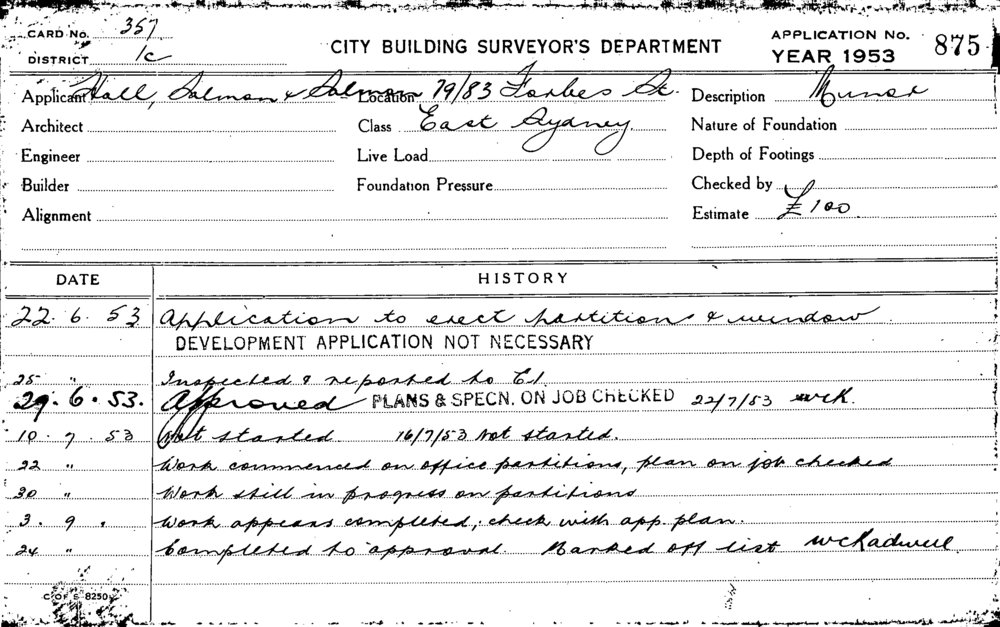 CARD No. 357
CITY BUILDING SURVEYOR'S DEPARTMENT
APPLICATION No. 875
YEAR 1953
DISTRICT 1c
Applicant Hall, Salmon & Salmon Location 79/83 Forbes St. Description Minor
Architect Class East Sydney. Nature of Foundation
Engineer Live Load Depth of Footings
Builder Foundation Pressure Checked by
Alignment Estimate £100
DATE HISTORY
22. 6. 53 Application to erect partitions & window
DEVELOPMENT APPLICATION NOT NECESSARY
25 " Inspected & reported to C1.
29. 6. 53. Approved PLANS & SPECN. ON JOB CHECKED 22/7/53 wck.
10. 7. 53 Not started. 16/7/53 Not started.
22 " Work commenced on office partitions, plan on job checked
30 " Work still in progress on partitions
3. 9. Work appears completed, check with app. plan.
24 " Completed to approval. Marked off list
C OF S 8250